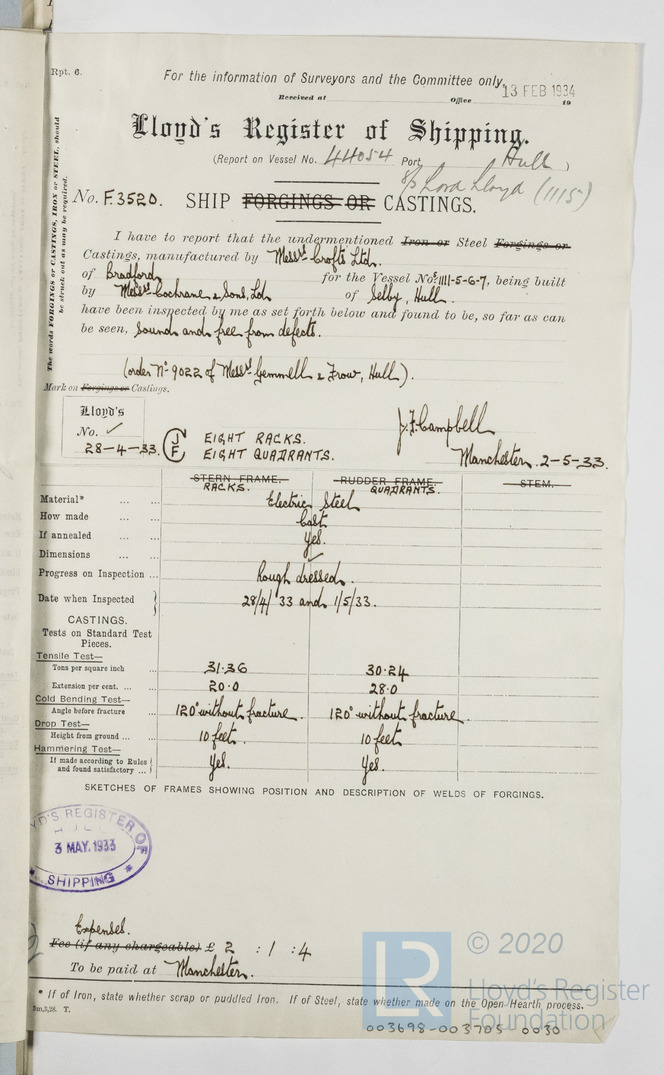 Rpt. 6.
For the information of Surveyors and the Committee only.
13 FEB 1934
Received at Office 19
Lloyd's Register of Shipping.
(Report on Vessel No. 44054 Port Hull)
S/S Lord Lloyd (1115)
No. F.3520. SHIP FORGINGS OR CASTINGS.
The words FORGINGS or CASTINGS, IRON or STEEL, should
be struck out as may be required.
I have to report that the undermentioned Iron or Steel Forgings or
Castings, manufactured by Messrs Crofts Ltd.
of Bradford for the Vessel Nos. 1111-5-6-7, being built
by Messrs Cochrane & Sons, Ltd of Selby, Hull.
have been inspected by me as set forth below and found to be, so far as can
be seen, Sound and free from defects.
(order No 9022 of Messrs Gemmell & Frow, Hull).
Mark on Forgings or Castings.
Lloyd's
No. ✓
28-4-33. JF EIGHT RACKS.
EIGHT QUADRANTS.
J. F. Campbell
Manchester. 2-5-33.
STERN FRAME. RUDDER FRAME. STEM.
RACKS. QUADRANTS.
Material* ... ... Electric Steel
How made ... ... Cast
If annealed ... ... Yes.
Dimensions ... ... ✓
Progress on Inspection ... Rough dressed.
Date when Inspected 28/4/33 and 1/5/33.
CASTINGS.
Tests on Standard Test
Pieces.
Tensile Test—
Tons per square inch ... 31.36 30.24
Extension per cent. ... ... 20.0 28.0
Cold Bending Test—
Angle before fracture ... 120° without fracture. 120° without fracture.
Drop Test—
Height from ground ... ... 10 feet. 10 feet.
Hammering Test—
If made according to Rules
and found satisfactory ... Yes. Yes.
SKETCHES OF FRAMES SHOWING POSITION AND DESCRIPTION OF WELDS OF FORGINGS.
LLOYD'S REGISTER OF
HULL
3 MAY. 1933
* SHIPPING *
Expenses.
Fee (if any chargeable) £ 2 : 1 : 4
To be paid at Manchester.
* If of Iron, state whether scrap or puddled Iron. If of Steel, state whether made on the Open Hearth process.
T.
LR © 2020
Lloyd's Register
Foundation
003698-003705-0030